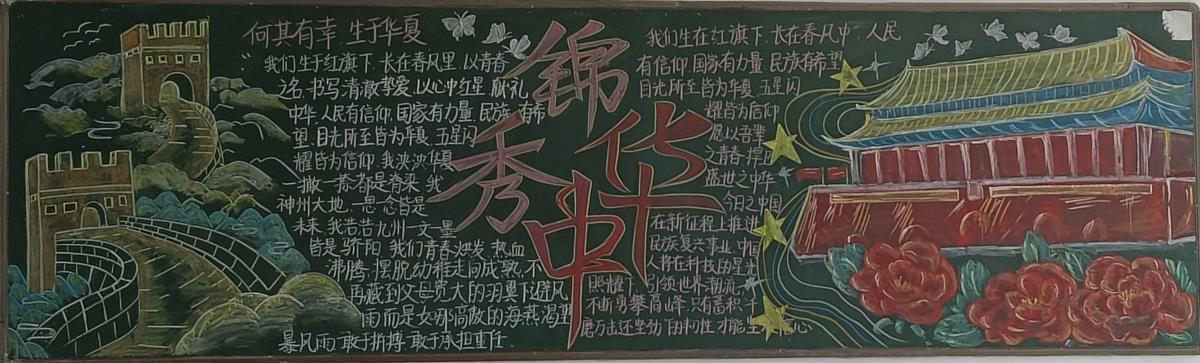 何其有幸 生于华夏
我们生于红旗下,长在春风里,以青春
之名,书写清澈挚爱,以心中红星,献礼
中华,人民有信仰,国家有力量,民族有希
望,目光所至皆为华夏,五星闪
耀皆为信仰,我泱泱华夏
一撇一捺都是脊梁,我
神州大地,一思一念皆是
未来,我浩浩九州一文一墨
皆是骄阳,我们青春焕发,热血
沸腾,摆脱幼稚走向成熟,不
再藏到父母宽大的羽翼下避风
雨而是如那高傲的海燕渴望
暴风雨,敢于拼搏,敢于承担重任.
锦
秀
中
华
我们生在红旗下,长在春风中,人民
有信仰,国家有力量,民族有希望
目光所至皆为华夏,五星闪
耀皆为信仰
愿以吾辈
之青春,捍卫
盛世之中华
今日之中国
在新征程上推进
民族复兴事业,中国
人将在科技的星光
照耀下,引领世界潮流,
不断勇攀高峰,只有蓄积千
磨万击还坚劲的韧性才能坚 信心